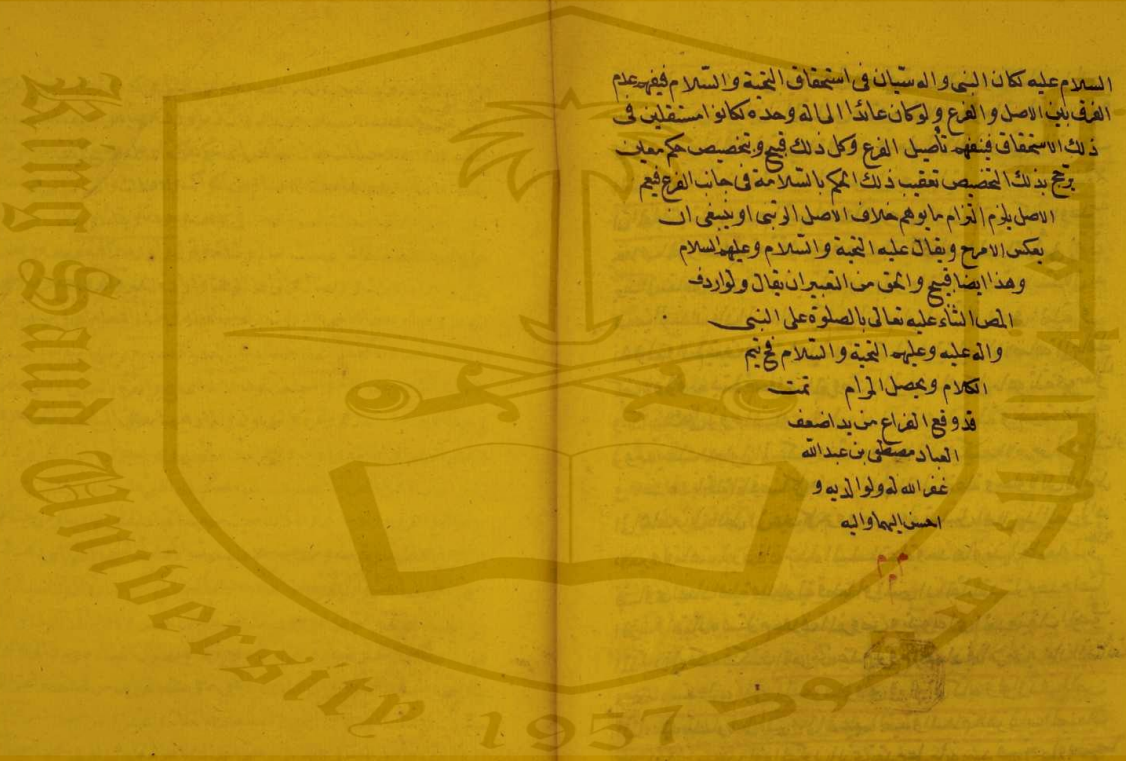 السلام عليه لكان النبى واله سيّان فى استحقاق التحية والسّلام فيفهم عدم
الفرق بين الاصل والفرع ولو كان عائدا الى اله وحده لكانوا مستقلين فى
ذلك الاستحقاق فيفهم تأصيل الفرع وكل ذلك قبيح وبتخصيص حكم معين
يرجح بذلك التخصيص تعقيب ذلك الحكم بالسّلامة فى جانب الفرع فيعم
الاصل يلزم التزام ما يوهم خلاف الاصل الرتبى او ينبغى ان
يعكس الامر ح ويقال عليه التحية والسّلام وعليهم السلام
وهذا ايضا قبيح والحق من التعبير ان يقال ولو اردف
المص الثناء عليه تعالى بالصلوة على النبى
واله عليه وعليهم التحية والسّلام فح يتم
الكلام ويحصل المرام تمت
قد وقع الفراغ من يد اضعف
العباد مصطفى بن عبدالله
غفر الله له ولوالديه و
احسن اليهما واليه
م م م
King Saud University 1957